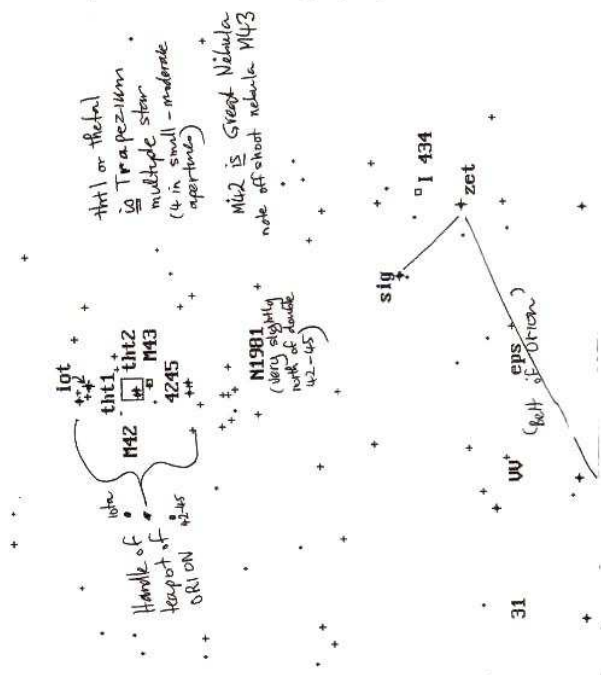 tht1 or theta1
is Trapezium
multiple star
(4 in small - moderate
apertures)
M42 is Great Nebula
note offshoot nebula M43
iot
tht1
tht2
M42
M43
4245
N1981
(very slightly
north of double
42-45)
Handle of
teapot of
ORION
iota
42-45
sig
I 434
zet
eps
(Belt of Orion)
VV
31